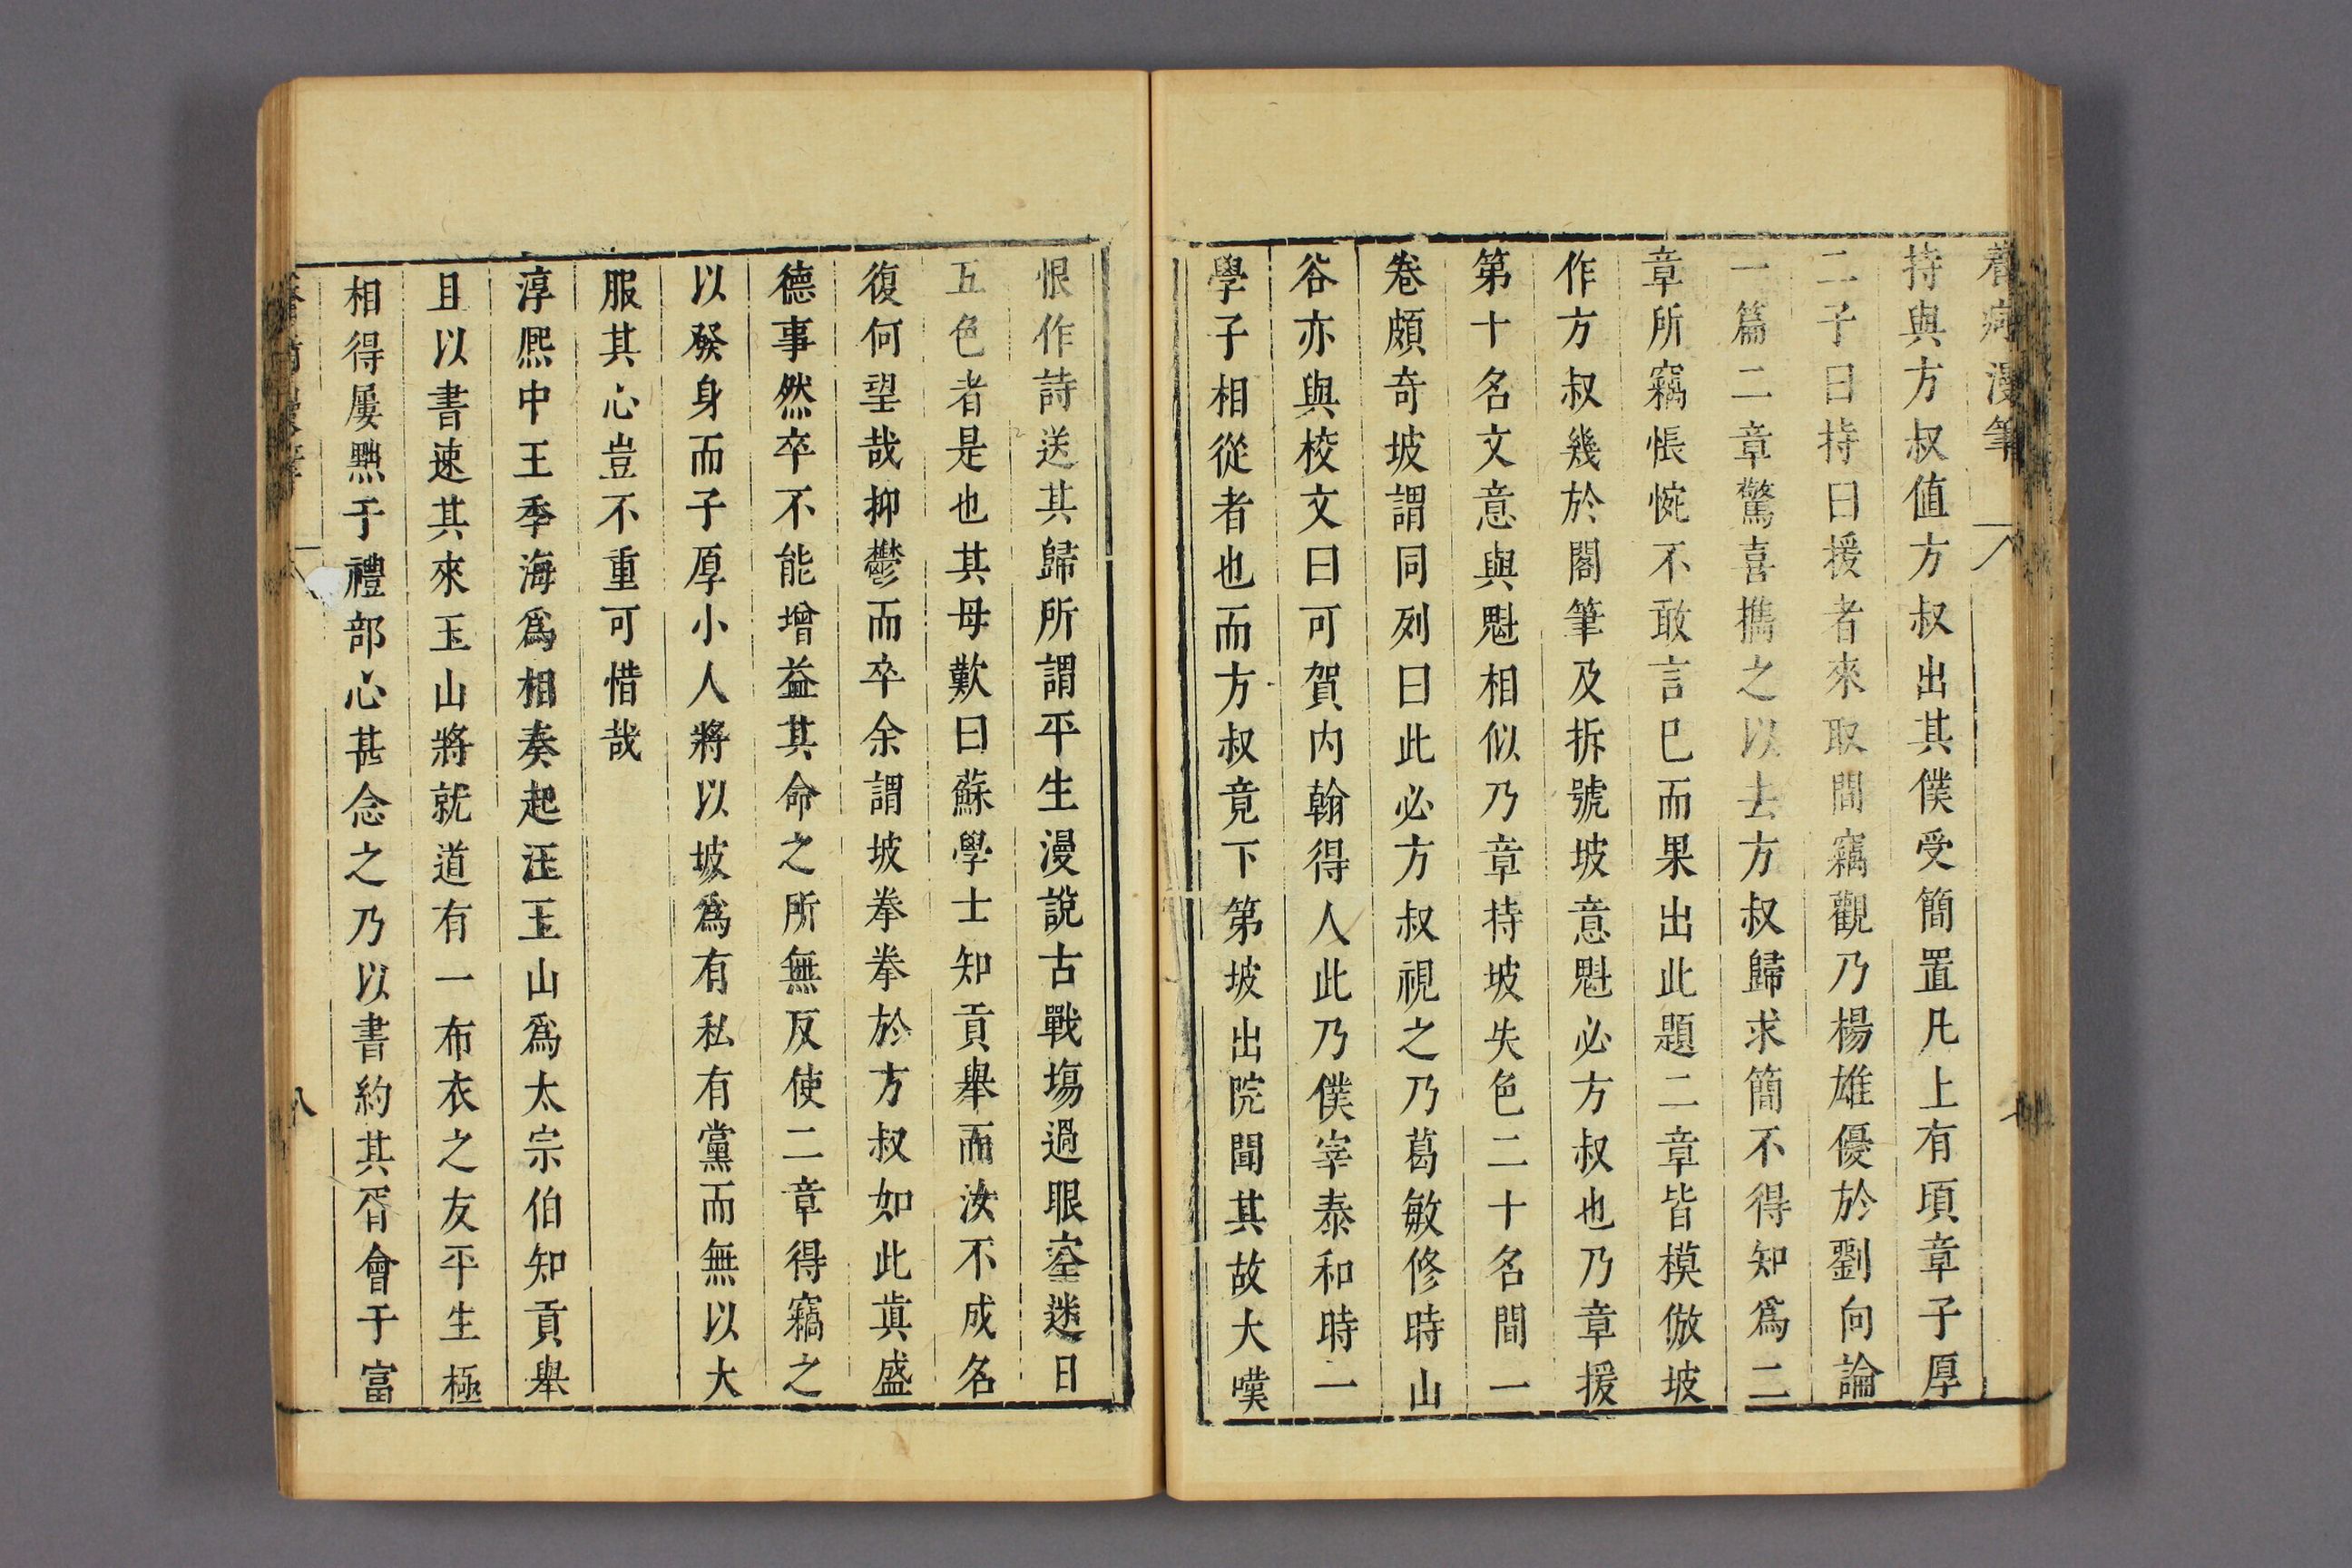 養疴漫筆
持與方叔值方叔出其僕受簡置凡上有頃章子厚
二子曰持曰援者來取間竊觀乃楊雄優於劉向論
一篇二章驚喜攜之以去方叔歸求簡不得知爲二
章所竊悵惋不敢言巳而果出此題二章皆模倣坡
作方叔幾於閣筆及拆號坡意魁必方叔也乃章援
第十名文意與魁相似乃章持坡失色二十名間一
卷頗奇坡謂同列曰此必方叔視之乃葛敏修時山
谷亦與校文曰可賀内翰得人此乃僕宰泰和時一
學子相從者也而方叔竟下第坡出院聞其故大嘆
恨作詩送其歸所謂平生漫說古戰塲過眼空迷日
五色者是也其母歎曰蘇學士知貢舉而汝不成名
復何望哉抑鬱而卒余謂坡拳拳於方叔如此真盛
德事然卒不能增益其命之所無反使二章得竊之
以發身而子厚小人將以坡爲有私有黨而無以大
服其心豈不重可惜哉
淳熈中王季海爲相奏起汪玉山爲太宗伯知貢舉
且以書速其來玉山將就道有一布衣之友平生極
相得屢黜于禮部心甚念之乃以書約其胥會于富
八